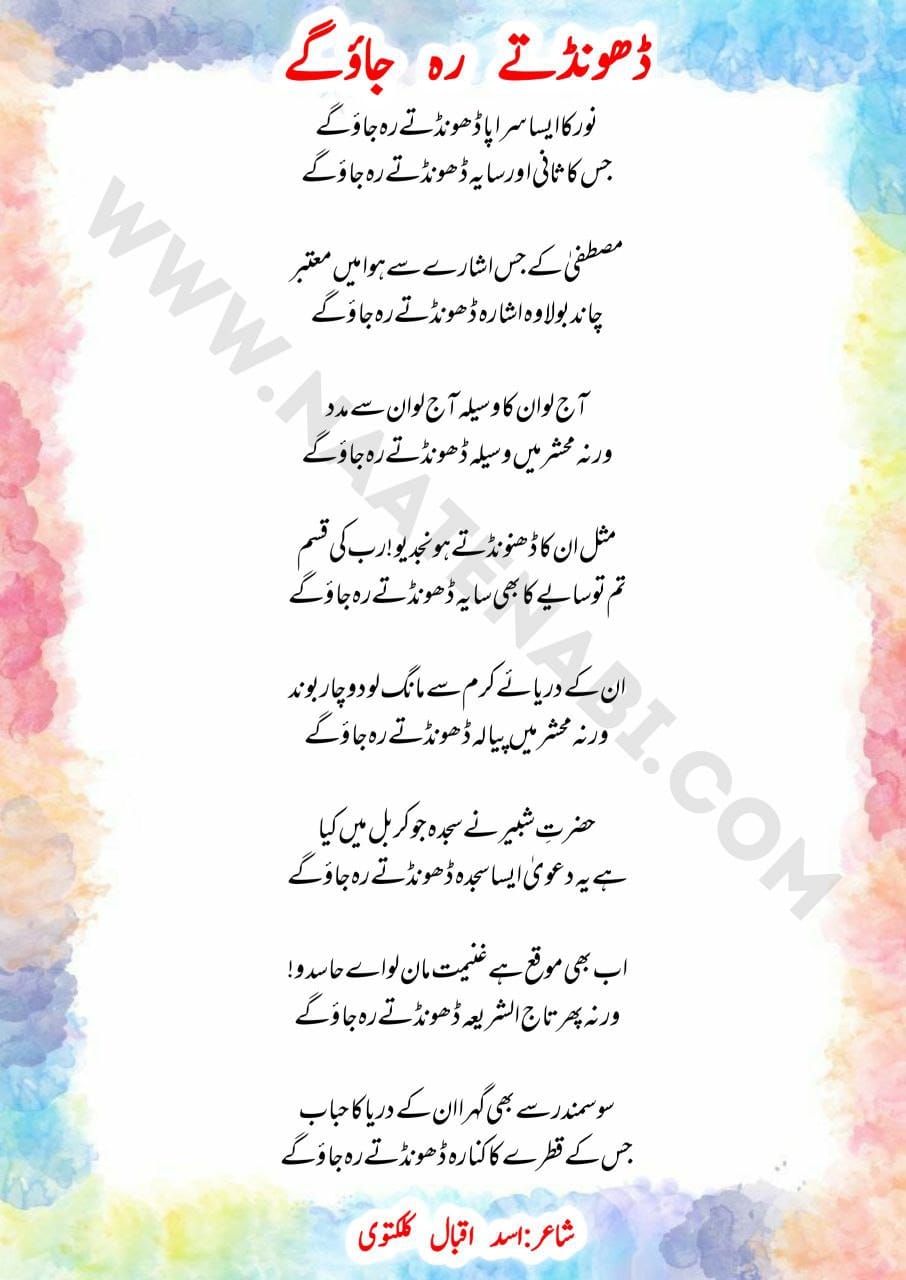 ڈھونڈتے رہ جاؤ گے
نور کا ایسا سراپا ڈھونڈتے رہ جاؤ گے
جس کا ثانی اور سایہ ڈھونڈتے رہ جاؤ گے
مصطفیٰ کے جس اشارے سے ہوا میں معتبر
چاند بولا وہ اشارہ ڈھونڈتے رہ جاؤ گے
آج لو ان کا وسیلہ آج لو ان سے مدد
ورنہ محشر میں وسیلہ ڈھونڈتے رہ جاؤ گے
مثل ان کا ڈھنونڈتے ہو نجدیو! رب کی قسم
تم تو سایے کا بھی سایہ ڈھونڈتے رہ جاؤ گے
ان کے دریائے کرم سے مانگ لو دو چار بوند
ورنہ محشر میں پیالہ ڈھونڈتے رہ جاؤ گے
حضرتِ شبیر نے سجدہ جو کربل میں کیا
ہے یہ دعویٰ ایسا سجدہ ڈھونڈتے رہ جاؤ گے
اب بھی موقع ہے غنیمت مان لو اے حاسدو!
ورنہ پھر تاج الشریعہ ڈھونڈتے رہ جاؤ گے
سو سمندر سے بھی گہرا ان کے دریا کا حباب
جس کے قطرے کا کنارہ ڈھونڈتے رہ جاؤ گے
شاعر: اسد اقبال کلکتوی
WWW.NAATENABI.COM